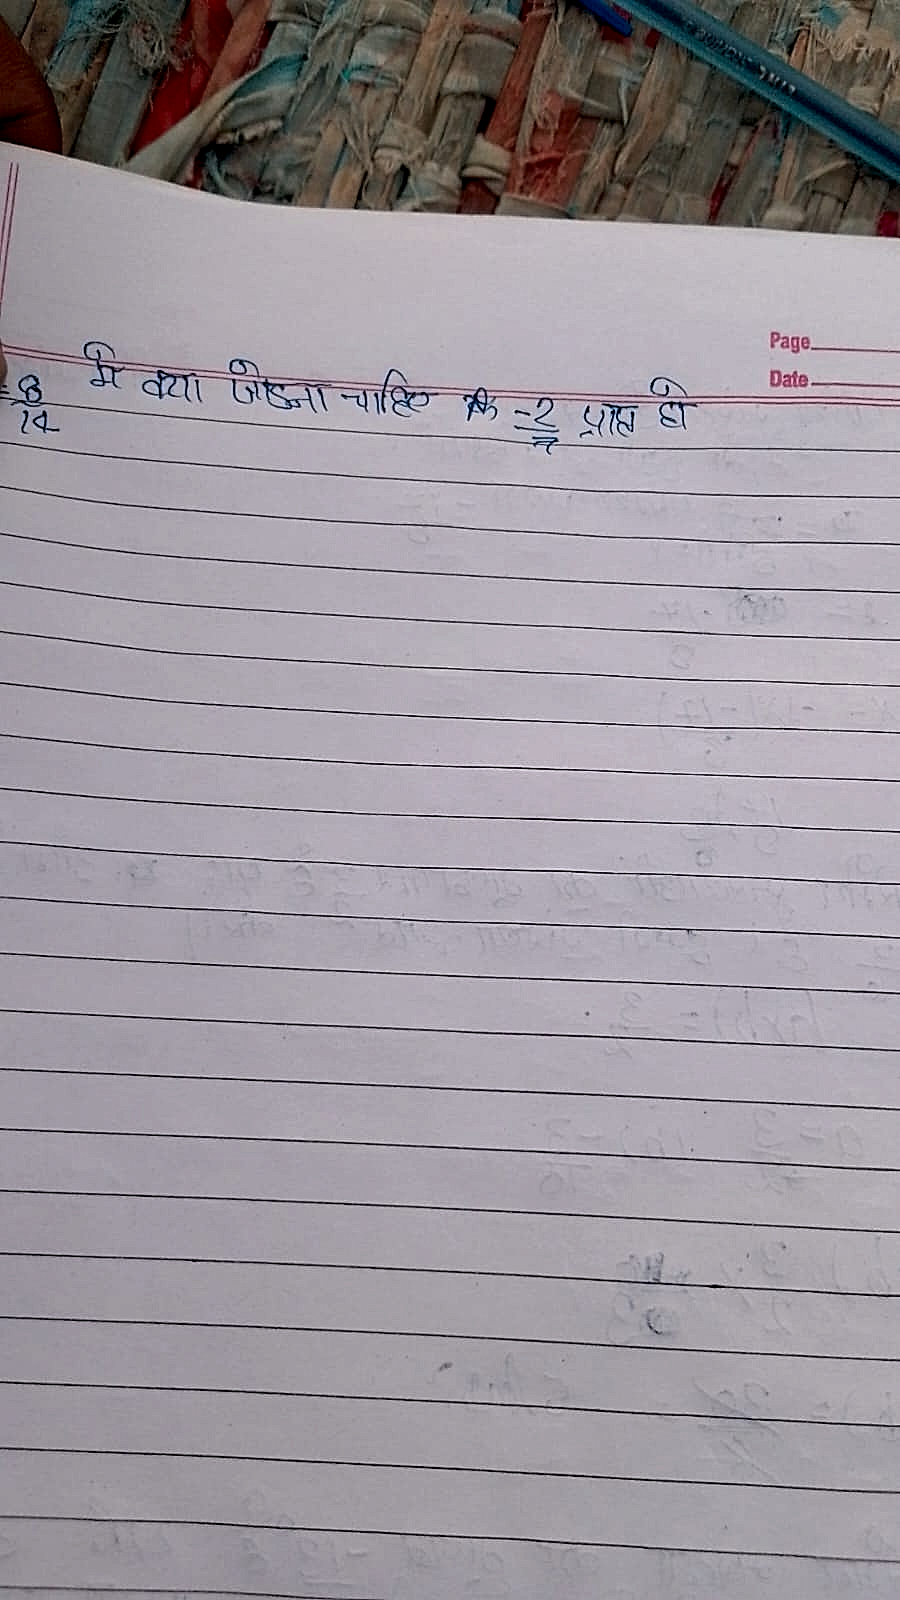 Page
Date
-8/14 मे क्या जोडना चाहिए कि -2/7 प्राप्त हो